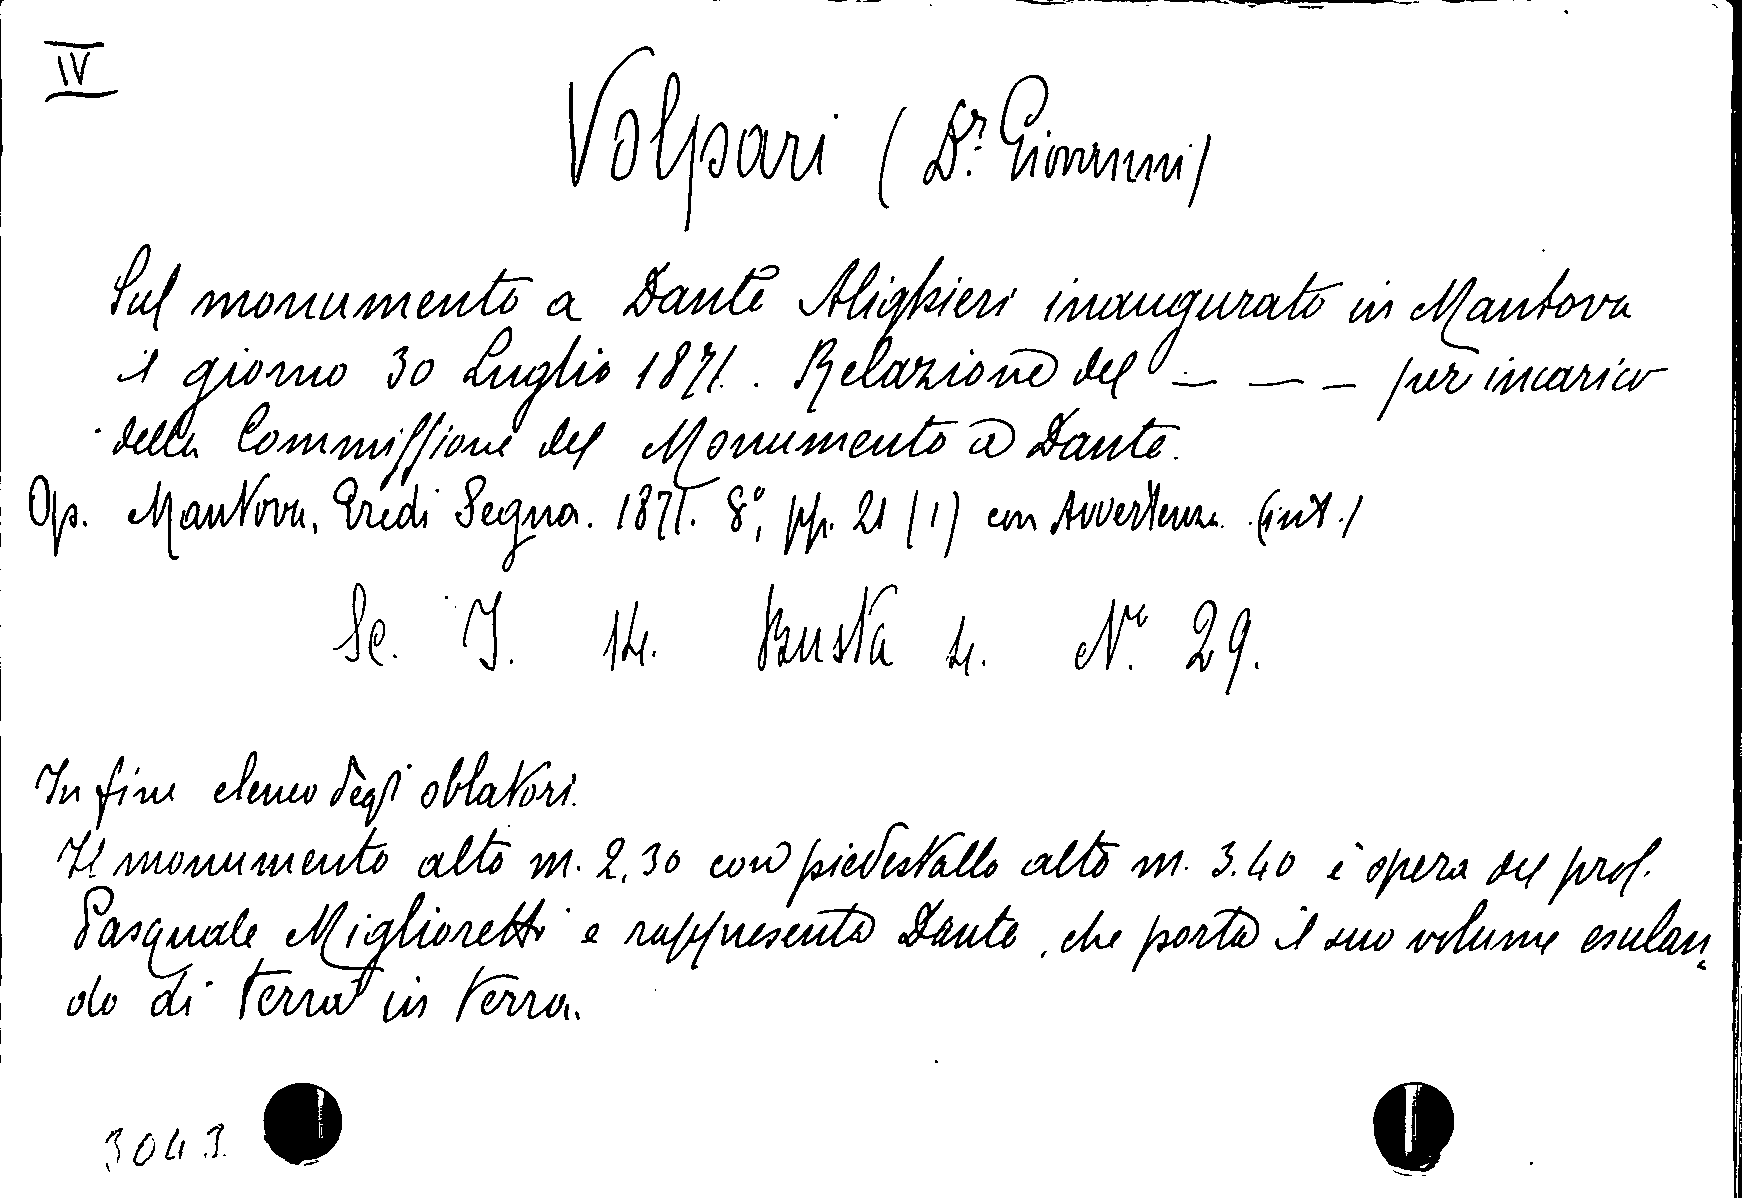 IV
Volpari (Dr. Giovanni)
Sul monumento a Dante Alighieri inaugurato in Mantova
il giorno 30 Luglio 1871. Relazione del — — — per incarico
della Commissione del Monumento a Dante.
Op. Mantova, Eredi Segna. 1871. 8°, pp. 21 (1) con Avvertenza. (int.)
Sc. I. 14. Busta 4. N.° 29.
In fine elenco degli oblatori.
Il monumento alto m. 2,30 con piedestallo alto m. 3.40 è opera del prof.
Pasquale Miglioretti e rappresenta Dante, che porta il suo volume esulan-
do di terra in terra.
3043.